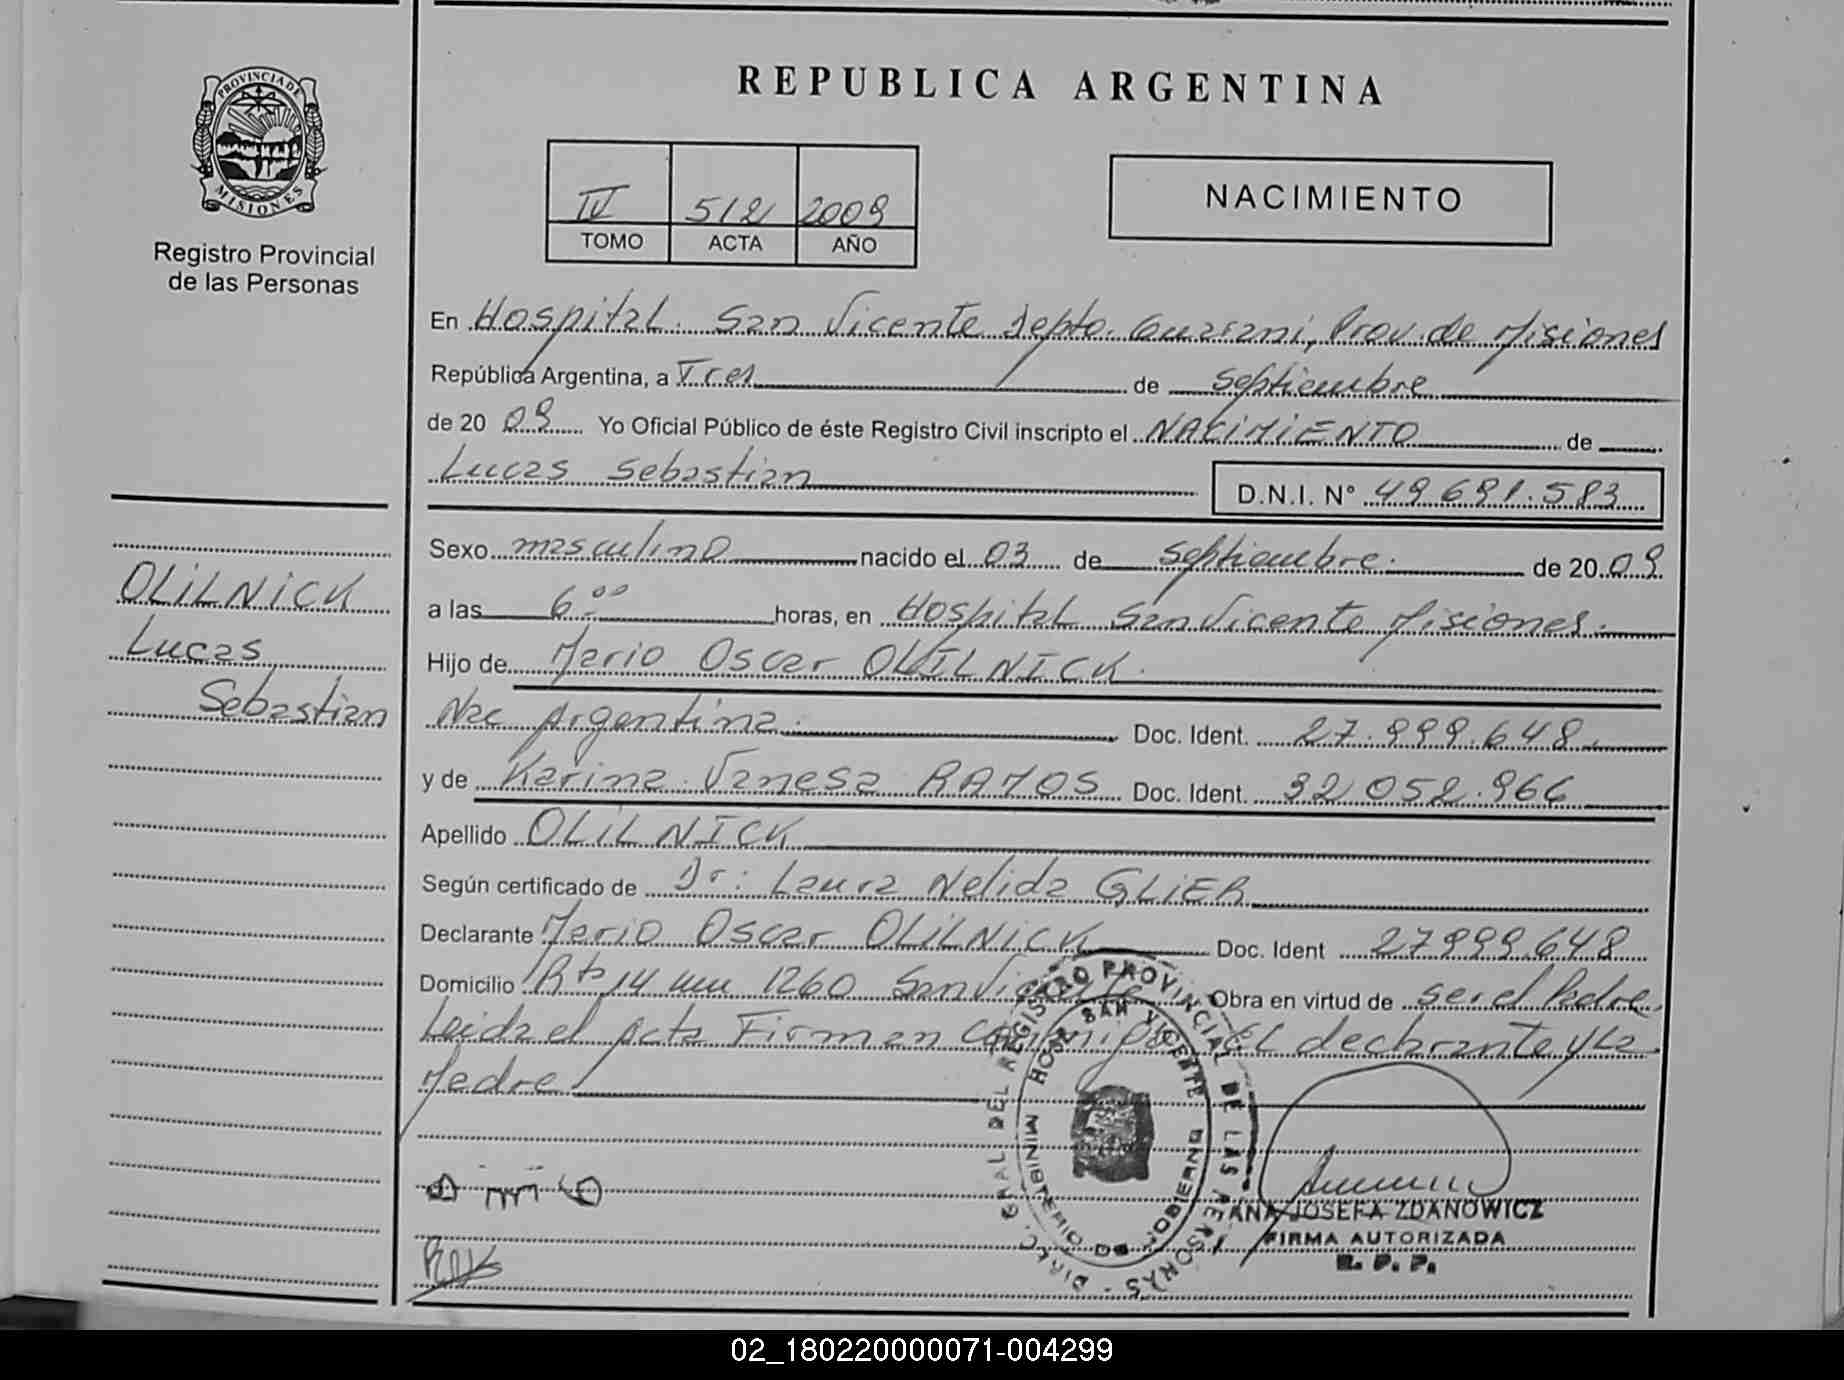 PROVINCIA DE
MISIONES
Registro Provincial
de las Personas
REPUBLICA ARGENTINA
IV 512 2009
TOMO ACTA AÑO
NACIMIENTO
En Hospital San Vicente Depto. Guarani, Prov. de Misiones
República Argentina, a Tres de Septiembre
de 20 09 Yo Oficial Público de éste Registro Civil inscripto el NACIMIENTO de
Lucas Sebastian D.N.I. Nº 49.691.583
OLILNICK
Lucas
Sebastian
Sexo masculino nacido el 03 de Septiembre de 20 09
a las 6 00 horas, en Hospital San Vicente Misiones.
Hijo de Mario Oscar OLILNICK
Nac Argentina. Doc. Ident. 27.999.648.
y de Karina Vanesa RAMOS Doc. Ident. 32 052.966
Apellido OLILNICK
Según certificado de Dr: Laura Nelida GLIER
Declarante Mario Oscar OLILNICK Doc. Ident 27999648
Domicilio Rta 14 km 1260 San Vicente Obra en virtud de ser el Padre.
Leida el Acta Firman Conmigo El declarante y La
Madre
DIREC. GRAL DEL REGISTRO PROVINCIAL DE LAS PERSONAS
HOSP. SAN VICENTE
MINISTERIO DE GOBIERNO
ANA JOSEFA ZDANOWICZ
FIRMA AUTORIZADA
R. P. P.
02_180220000071-004299